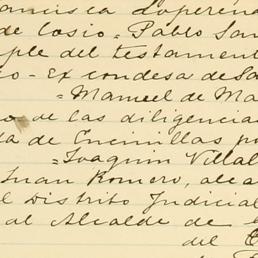 ancisca Loperena
de Cosio - Pablo San
ple del testament
co - Ex condesa de Sa
= Manuel de Ma
o de las diligencia
da de Encinillas po
= Joaquin Villal
Juan Romero, alca
l Distrito Judicial
al Alcalde de
del